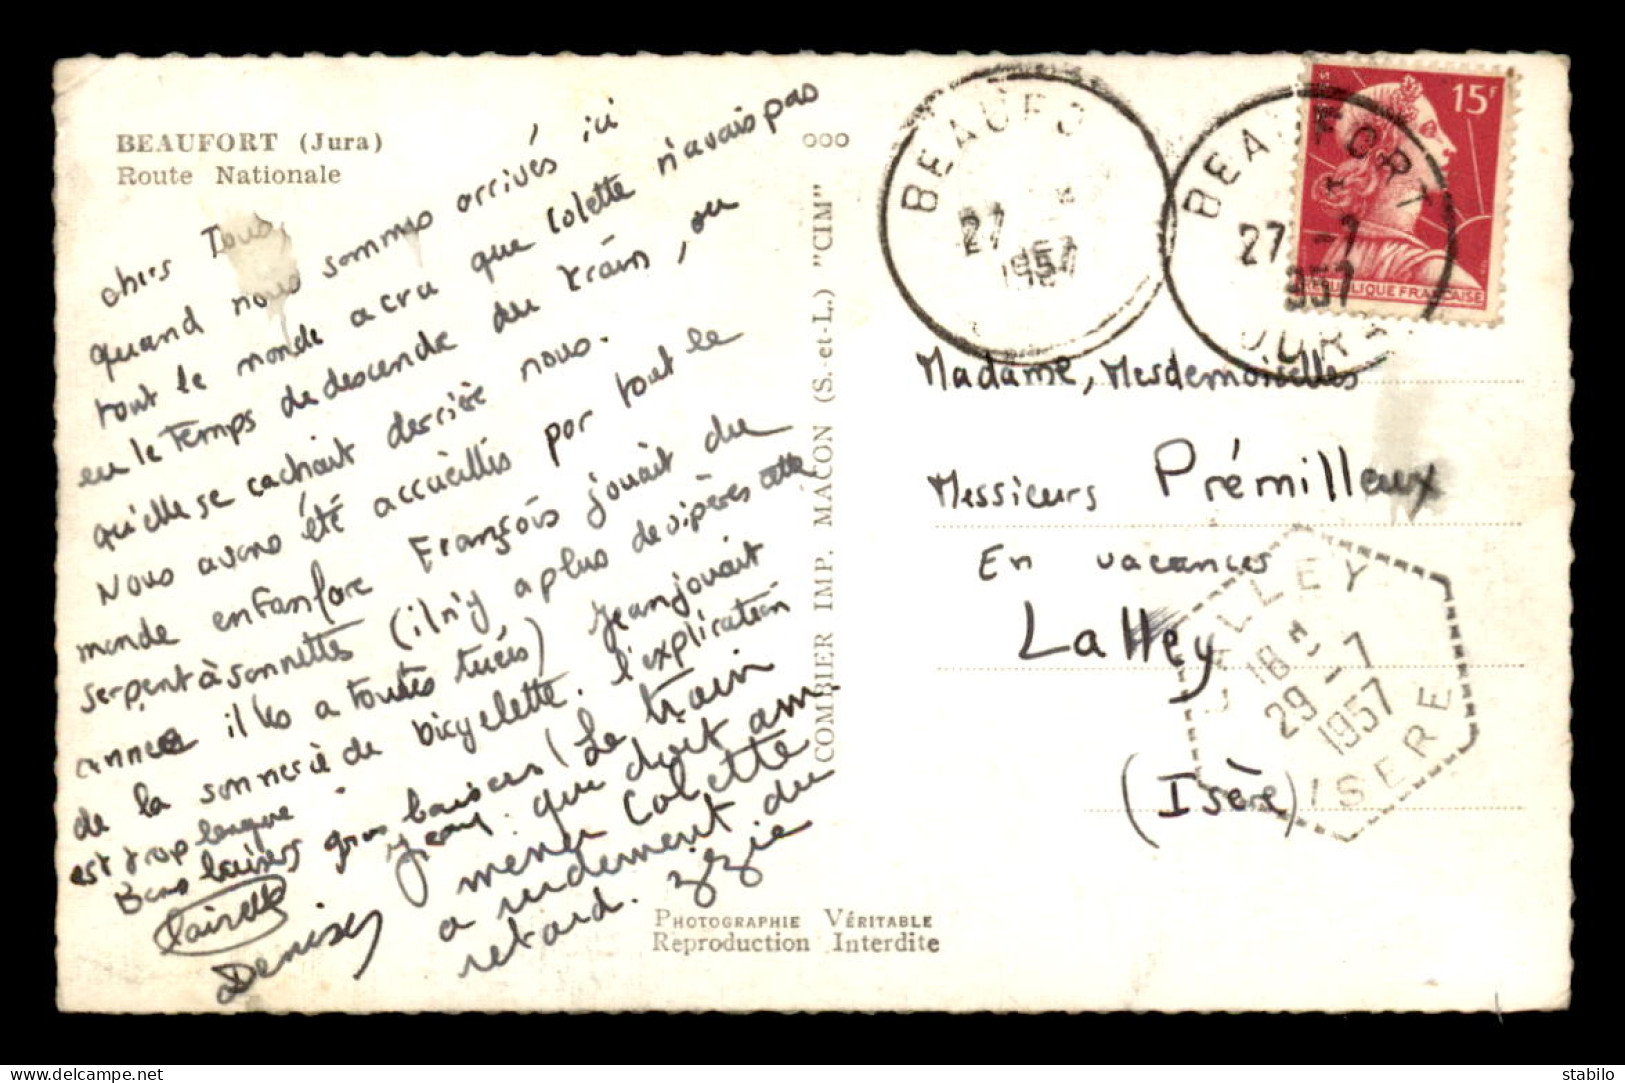 BEAUFORT (Jura)
Route Nationale
chers Tous,
quand nous sommes arrivés ici
tout le monde a cru que Colette n'avais pas
eu le temps de descendre du train, ou
qu'elle se cachait derrière nous.
Nous avons été accueillis par tout le
monde en fanfare François jouait du
serpent à sonnettes (il n'y a plus de vipères cette
année il les a toutes tuées) Jean jouait
de la sonnerie de bicyclette. l'explication
est trop longue
Bons baisers gros baisers (Le train
Jean. que doit am
Clairette mener Colette
Denise a rudement du
retard. zizie
COMBIER IMP. MACON (S.-et-L.) "CIM"
PHOTOGRAPHIE VÉRITABLE
Reproduction Interdite
BEAUFO
27
1957
BEAUFORT
27 -7
957
JURA
15F
REPUBLIQUE FRANCAISE
Madame, Mesdemoiselles
Messieurs Prémilleux
En vacances
Lalley
(Isère)
LALLEY
18 H
29 -7
1957
ISERE
www.stabilo4ever.delcampe.net
Stabilo